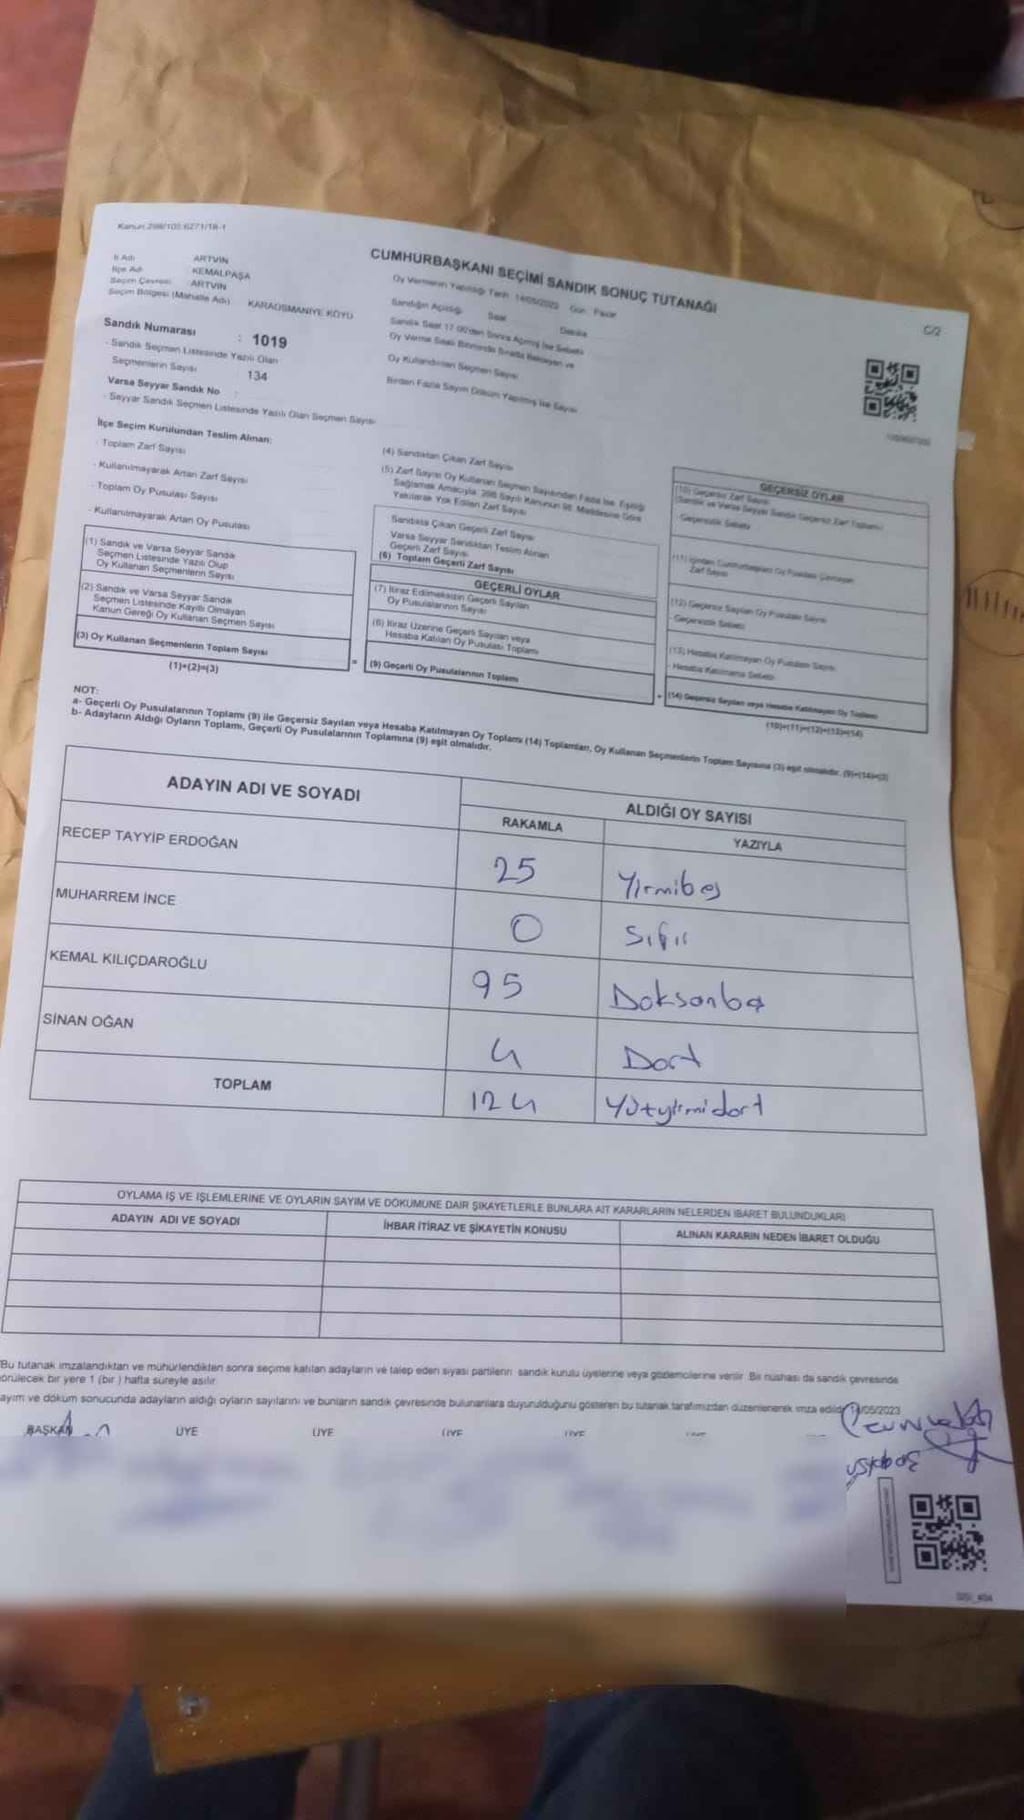 Kanun:298/105.6271/18-1
CUMHURBAŞKANI SEÇİMİ SANDIK SONUÇ TUTANAĞI
C/2
İl Adı ARTVİN
İlçe Adı KEMALPAŞA
Seçim Çevresi ARTVİN
Seçim Bölgesi (Mahalle Adı) KARAOSMANİYE KÖYÜ
Oy Vermenin Yapıldığı Tarih 14/05/2023 Gün Pazar
Sandığın Açıldığı Saat Dakika
Oy Kullandırılan Seçmen Sayısı
Birden Fazla Sayım Döküm Yapılmış İse Sayısı
Sandık Numarası : 1019
- Sandık Seçmen Listesinde Yazılı Olan
Seçmenlerin Sayısı 134
Varsa Seyyar Sandık No :
- Seyyar Sandık Seçmen Listesinde Yazılı Olan Seçmen Sayısı
İlçe Seçim Kurulundan Teslim Alınan:
- Toplam Zarf Sayısı
- Kullanılmayarak Artan Zarf Sayısı
- Toplam Oy Pusulası Sayısı
- Kullanılmayarak Artan Oy Pusulası
(1) Sandık ve Varsa Seyyar Sandık
Seçmen Listesinde Yazılı Olup
Oy Kullanan Seçmenlerin Sayısı
(2) Sandık ve Varsa Seyyar Sandık
Seçmen Listesinde Kayıtlı Olmayan
Kanun Gereği Oy Kullanan Seçmen Sayısı
(3) Oy Kullanan Seçmenlerin Toplam Sayısı
(1)+(2)=(3)
(4) Sandıktan Çıkan Zarf Sayısı
(5) Zarf Sayısı Oy Kullanan Seçmen Sayısından Fazla İse, Eşitliği
Sağlamak Amacıyla, 298 Sayılı Kanunun 98. Maddesine Göre
Yakılarak Yok Edilen Zarf Sayısı
Sandıkta Çıkan Geçerli Zarf Sayısı
Varsa Seyyar Sandıktan Teslim Alınan
Geçerli Zarf Sayısı
(6) Toplam Geçerli Zarf Sayısı
GEÇERLİ OYLAR
(7) İtiraz Edilmeksizin Geçerli Sayılan
Oy Pusulalarının Sayısı
(8) İtiraz Üzerine Geçerli Sayılan veya
Hesaba Katılan Oy Pusulası Toplamı
= (9) Geçerli Oy Pusulalarının Toplamı
GEÇERSİZ OYLAR
(10) Geçersiz Zarf Sayısı
(Sandık ve Varsa Seyyar Sandık Geçersiz Zarf Toplamı)
- Geçersizlik Sebebi
Zarf Sayısı
(12) Geçersiz Sayılan Oy Pusulası Sayısı
- Geçersizlik Sebebi
(13) Hesaba Katılmayan Oy Pusulası Sayısı
- Hesaba Katılmama Sebebi
+ (14) Geçersiz Sayılan veya Hesaba Katılmayan Oy Toplamı
(10)+(11)+(12)+(13)=(14)
NOT:
a- Geçerli Oy Pusulalarının Toplamı (9) ile Geçersiz Sayılan veya Hesaba Katılmayan Oy Toplamı (14) Toplamları, Oy Kullanan Seçmenlerin Toplam Sayısına (3) eşit olmalıdır. (9)+(14)=(3)
b- Adayların Aldığı Oyların Toplamı, Geçerli Oy Pusulalarının Toplamına (9) eşit olmalıdır.
ADAYIN ADI VE SOYADI
ALDIĞI OY SAYISI
RAKAMLA YAZIYLA
RECEP TAYYİP ERDOĞAN 25 Yirmibeş
MUHARREM İNCE 0 Sıfır
KEMAL KILIÇDAROĞLU 95 Doksanbeş
SİNAN OĞAN 4 Dört
TOPLAM 124 Yüzyirmidört
OYLAMA İŞ VE İŞLEMLERİNE VE OYLARIN SAYIM VE DÖKÜMÜNE DAİR ŞİKAYETLERLE BUNLARA AİT KARARLARIN NELERDEN İBARET BULUNDUKLARI
ADAYIN ADI VE SOYADI İHBAR İTİRAZ VE ŞİKAYETİN KONUSU ALINAN KARARIN NEDEN İBARET OLDUĞU
Bu tutanak imzalandıktan ve mühürlendikten sonra seçime katılan adayların ve talep eden siyasi partilerin sandık kurulu üyelerine veya gözlemcilerine verilir. Bir nüshası da sandık çevresinde
görülecek bir yere 1 (bir ) hafta süreyle asılır.
ayım ve döküm sonucunda adayların aldığı oyların sayılarını ve bunların sandık çevresinde bulunanlara duyurulduğunu gösteren bu tutanak tarafımızdan düzenlenerek imza edildi /05/2023
BAŞKAN ÜYE ÜYE ÜYE ÜYE